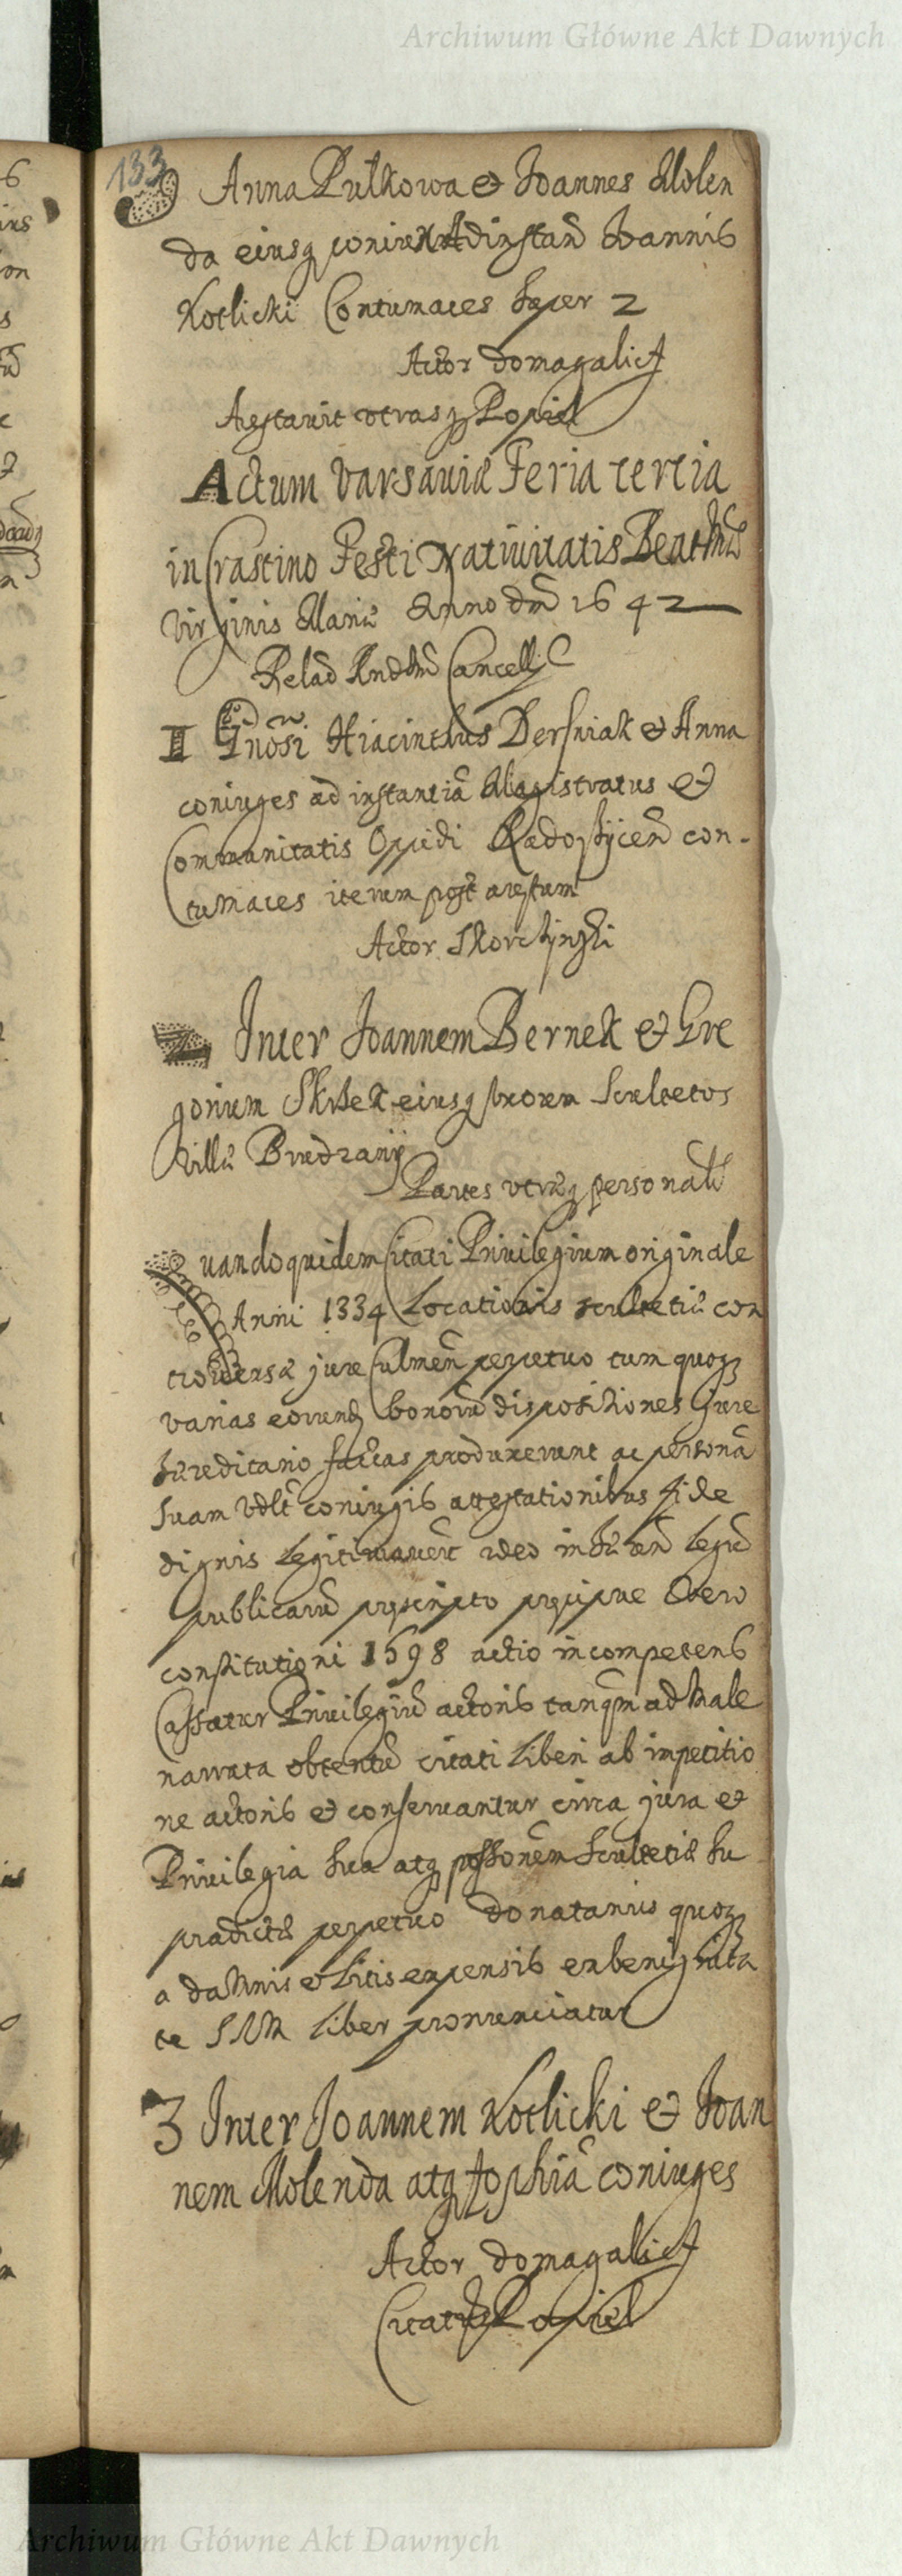 Archiwum Główne Akt Dawnych
133
Anna Pułkowa et Joannes Molen
da eiusq coniunx Ad instan̄ Joannis
Kotlicki Contumaces super 2
Actor Domagalict
Arestavit utrasq Popiel
Actum Varsaviæ Feria tertia
in Crastino Festi Nativitatis Beatissimæ
Virginis Mariæ Anno dni 1642
Relaõ Cancellij
II Gnosi Hiacinthus Dersniak et Anna
coniuges ad instantiã Magistratus et
Communitatis Oppidi Radoszycen̄ con-
tumaces iterum post arestum
Actor Skorczynski
2 Inter Joannem Bernek et Gre
gorium eiusq uxorem Scultetos
villæ Brudzanij
Partes utræq personalr
Quandoquidem Citati Privilegium originale
Anni 1334 Locationis scultetiæ con
troversæ jure Culmen̄ perpetuo tum quoq
varias eorund bonorũ dispositiones jure
hæreditario factas produxerunt ac personã
suam coniugis attestationibus fide
dignis legitimaverũt ideo inhæren̄ legũ
publicarũ præscripto præcipue vero
constitutioni 1598 actio incompetens
Cassatur Privilegiũ actoris tanqm ad male
narrata obtentũ citati liberi ab impetitio
ne actoris et conservantur circa jura et
Privilegia sua atq possonẽm Scultetiæ su
prædictæ perpetuo donatarius quoq
a damnis et litis expensis ex benignita
te SRM liber pronunciatur
3 Inter Joannem Kotlicki et Joan
nem Molenda atq Zophiã coniuges
Actor Domagalict
Citatus Popiel
Archiwum Główne Akt Dawnych